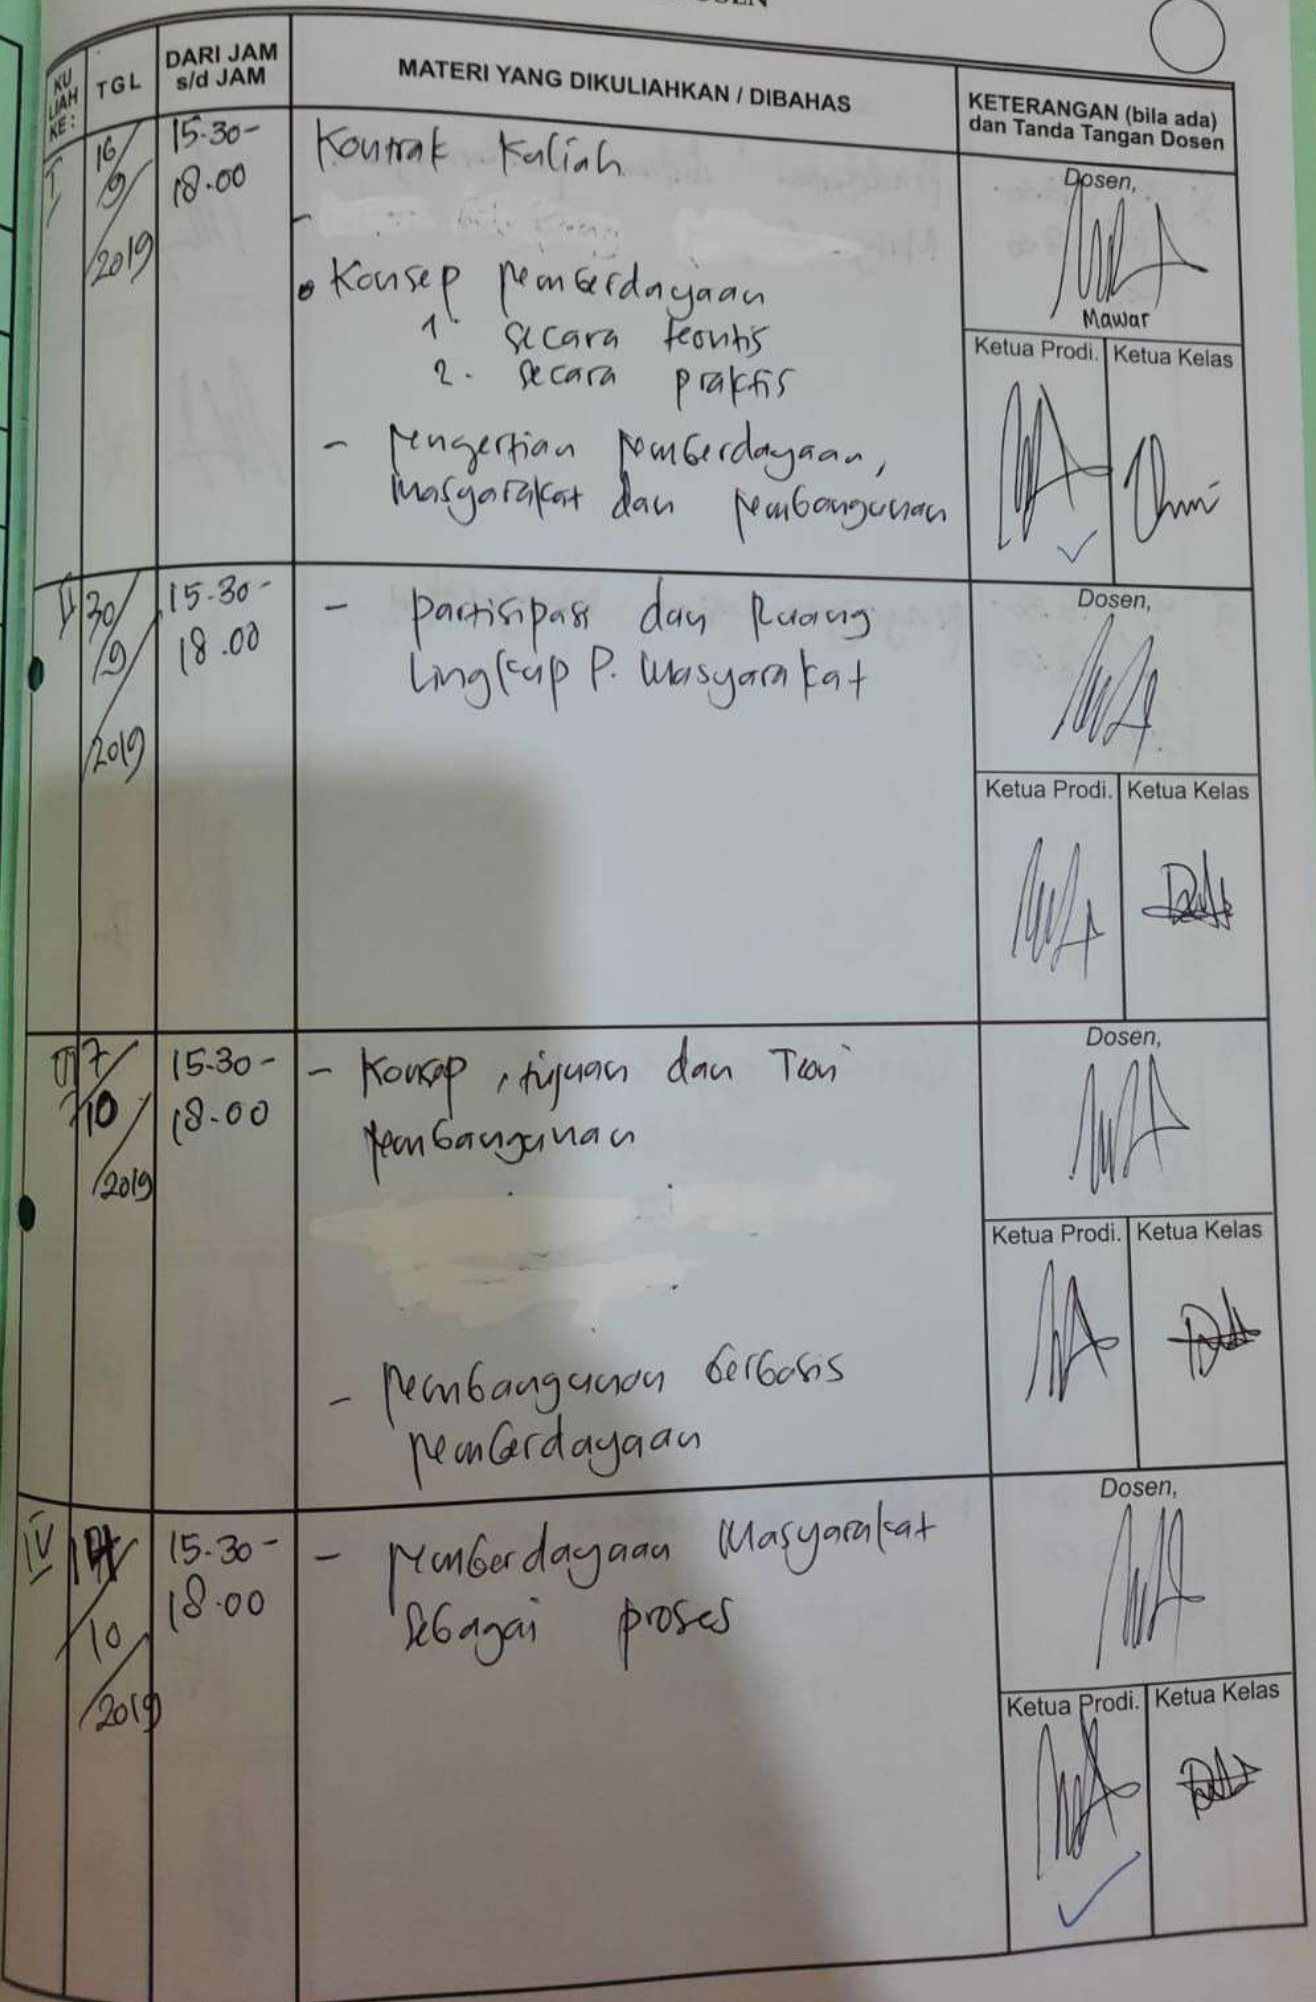 KU
LIAH
KE :
TGL
DARI JAM
s/d JAM
MATERI YANG DIKULIAHKAN / DIBAHAS
KETERANGAN (bila ada)
dan Tanda Tangan Dosen
I
16/
9/
/2019
15.30-
18.00
Kontrak Kuliah
• Konsep pemberdayaan
1. secara teoritis
2. secara praktis
- pengertian pemberdayaan,
masyarakat dan pembangunan
Dosen,
Mawar
Ketua Prodi.
Ketua Kelas
II
30/
/9/
/2019
15.30-
18.00
- partisipasi dan Ruang
Lingkup P. Masyarakat
Dosen,
Ketua Prodi.
Ketua Kelas
III
7/
/10/
/2019
15.30-
18.00
- Konsep, tujuan dan Teori
pembangunan
- pembangunan berbasis
pemberdayaan
Dosen,
Ketua Prodi.
Ketua Kelas
IV
14/
/10/
/2019
15.30-
18.00
- pemberdayaan Masyarakat
sebagai proses
Dosen,
Ketua Prodi.
Ketua Kelas